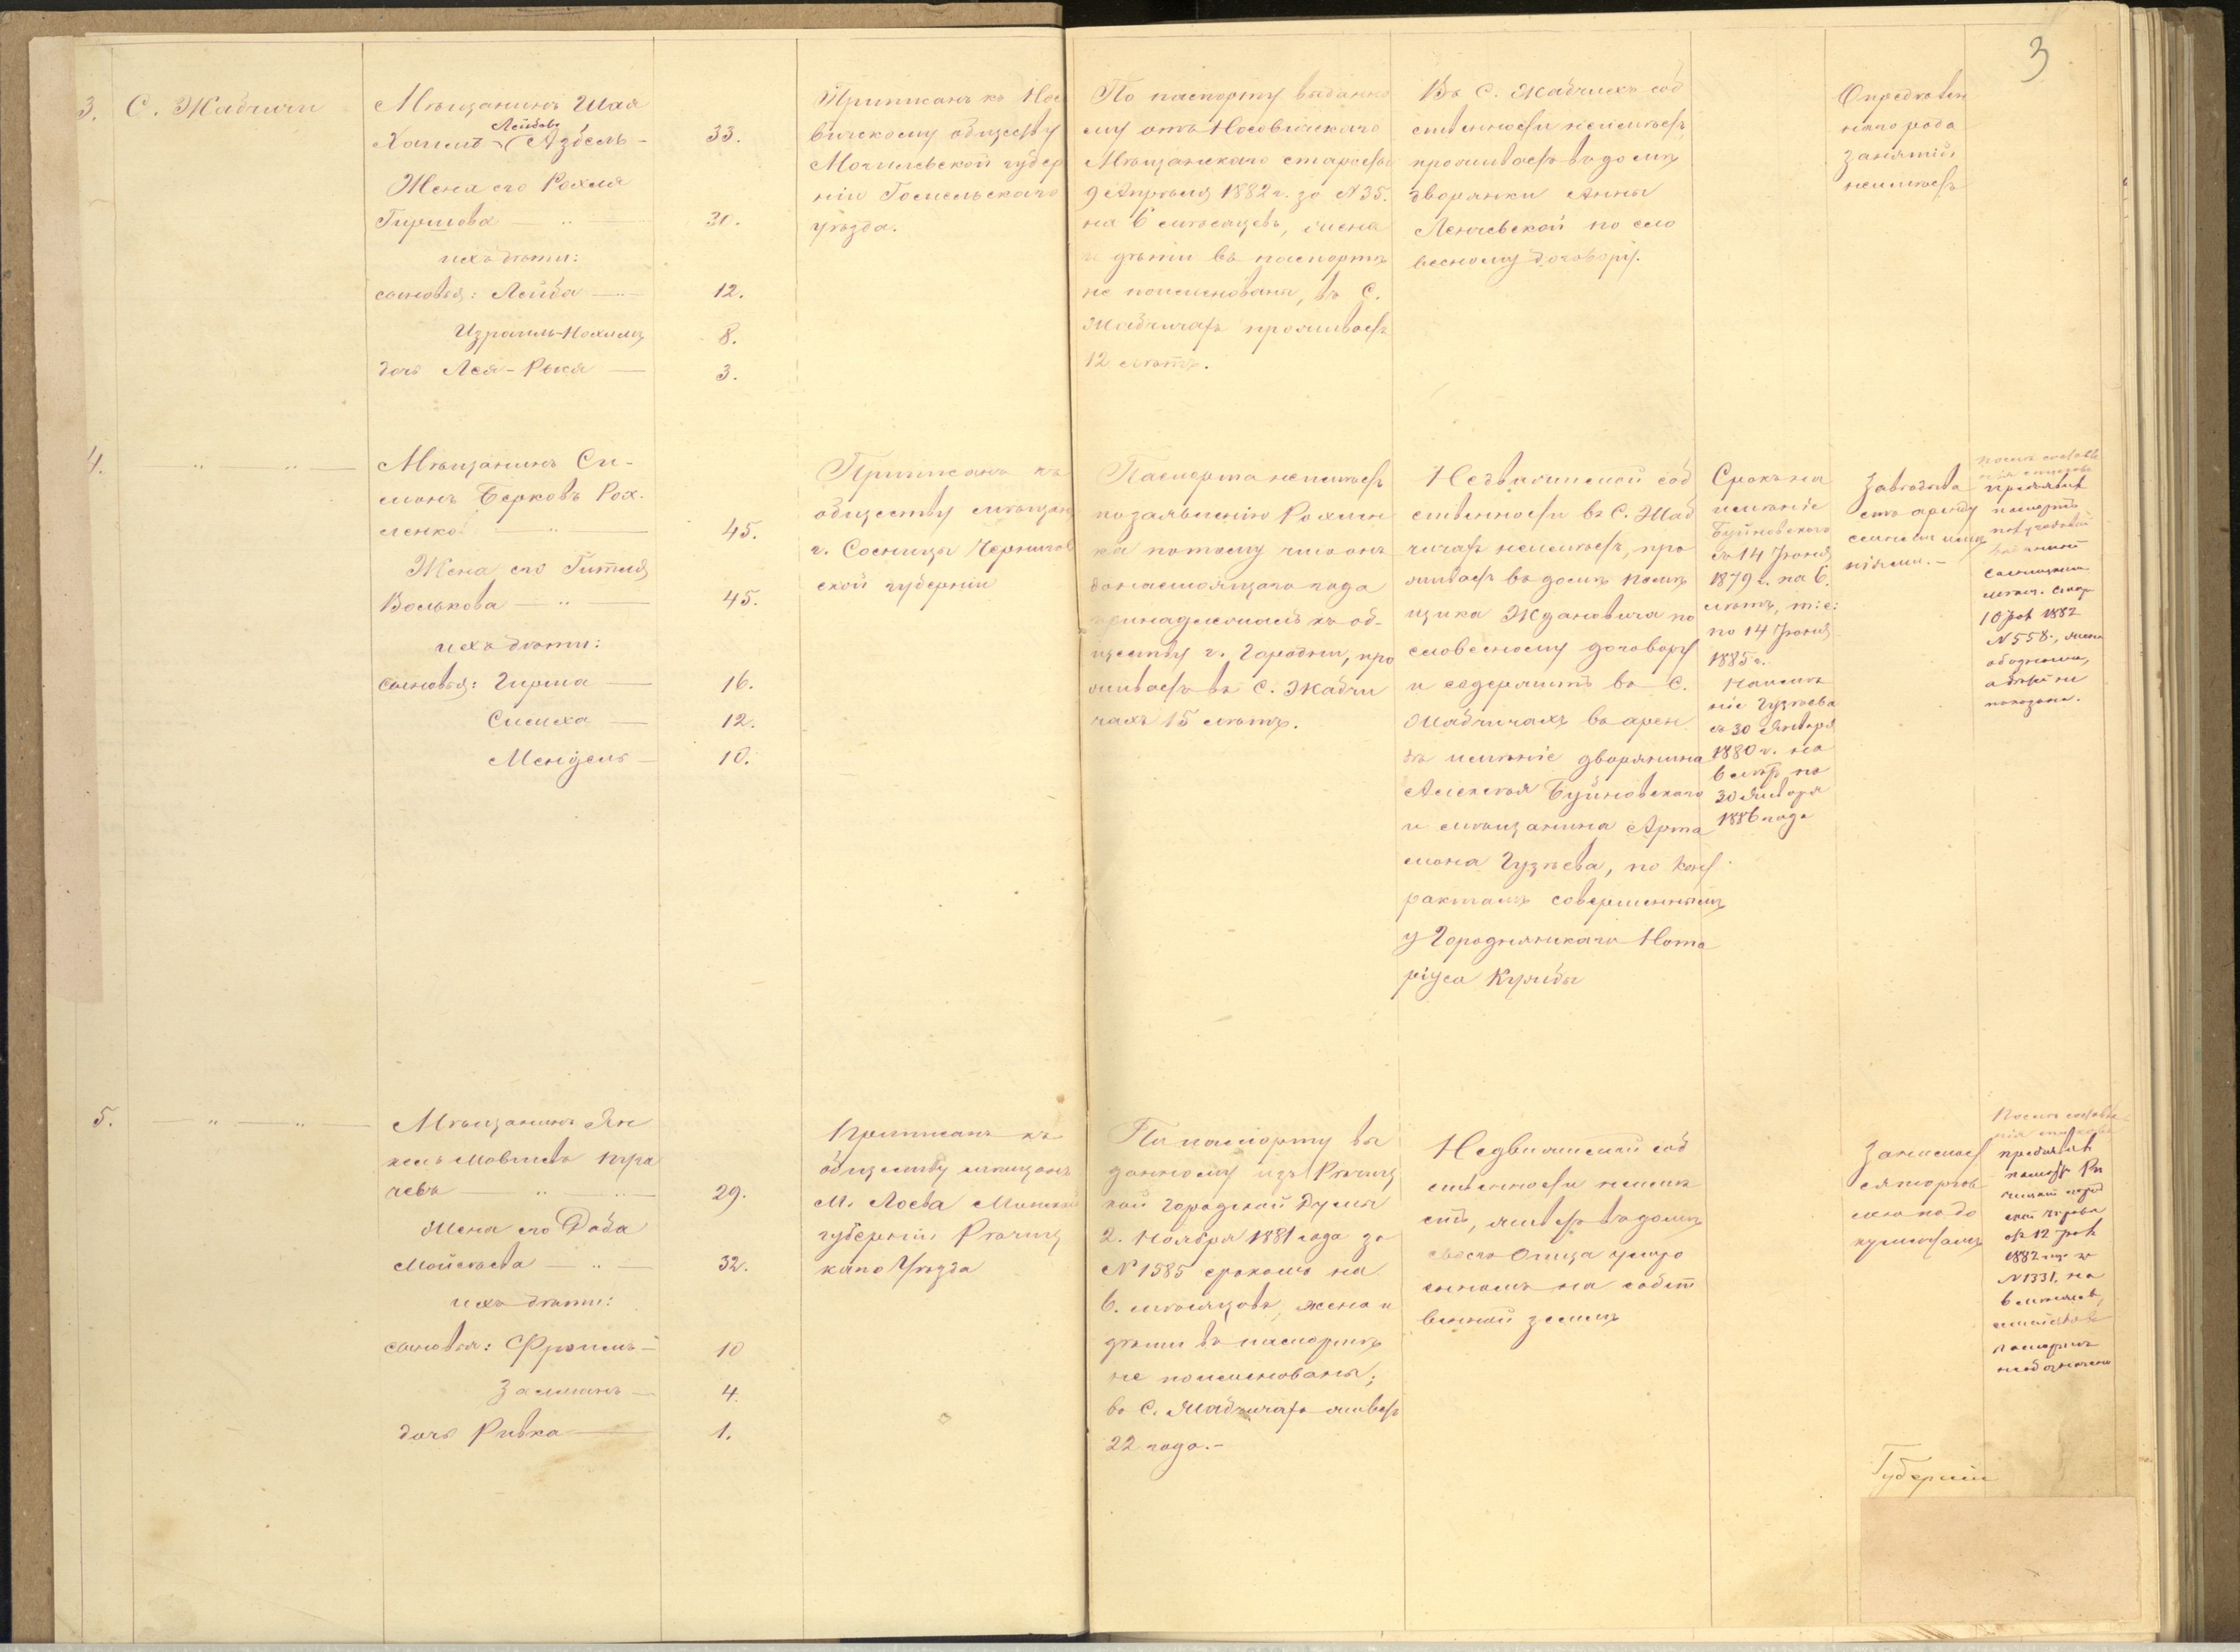 3
3. С. Жабчичи
Мѣщанинъ Шая
Хаимъ Лейбовъ Азбель - 33.
Жена его Рохля
Гиршова 31.
ихъ дѣти:
сыновья: Лейба 12.
Израиль-Нохимъ 8.
дочь Лея-Рыся 3.
Приписанъ къ Носо
вичскому обществу
Могилевской губер
ніи Гомельскаго
уѣзда.
По паспорту выданно
му отъ Носовичскаго
Мѣщанскаго старосты
9 Апрѣля 1882 г. за N 35.
на 6 мѣсяцевъ, жена
и дѣти въ паспортѣ
не поименованы, въ С.
Жабчичахъ проживаетъ
12 лѣтъ.
Въ С. Жабчичахъ соб
ственности неимѣетъ,
проживаетъ въ домѣ
дворянки Анны
по сло
весному договору.
Опредѣлен
наго рода
занятій
неимѣетъ
4. " "
Мѣщанинъ Си-
монъ Берковъ Рох-
ленко 45.
Жена его Гитля
Волькова 45.
ихъ дѣти:
сыновья: Гирша 16.
Симха 12.
Мендель 10.
Приписанъ къ
обществу мѣщанъ
г. Сосницы Чернигов
ской губерніи
Паспорта неимѣетъ
по заявленію Рохлен
ка потому что онъ
до настоящаго года
принадлежалъ къ об-
ществу г. Городни, про
живаетъ въ С. Жабчи
чахъ 15 лѣтъ.
Недвижимой соб
ственности въ С. Жаб
чичахъ неимѣетъ, про
живаетъ въ домѣ помѣ
щика Ждановича по
словесному договору
и содержитъ въ С.
Жабчичахъ въ арен
дѣ имѣніе дворянина
Алексѣя Буйновскаго
и мѣщанина Арта
мона Гузѣева, по конт
рактамъ совершеннымъ
у Городнянскаго Нота
ріуса
Срокъ на
имѣніе
Буйновскаго
съ 14 Іюня
1879 г. на 6.
лѣтъ, т: е:
по 14 Іюня
1885 г.
На имѣ
ніе Гузѣева
съ 30 Января
1880 г. на
6 лѣтъ по
30 Января
1886 года
Завѣдыва
етъ аренду
емыми имѣ
ніями. -
послѣ составле
нія списковъ
предъявилъ
паспортъ
полугодовой
выданный
Сосницкимъ
мѣщ. стар
10 1882
N 558., жена
а дѣти не
показаны.
5. " "
Мѣщанинъ Ян
кель Мовшевъ
чевъ 29.
Жена его Доба
Мойсѣева 32.
ихъ дѣти:
сыновья: Фроимъ 10
Залманъ 4.
дочь Ривка 1.
Приписанъ къ
обществу мѣщанъ
М. Лоева Минской
губерніи Рѣчиц
каго Уѣзда
По паспорту вы
данному изъ Рѣчиц
кой Городской Думы
2. Ноября 1881 года за
N 1585 срокомъ на
6. мѣсяцовъ, жена и
дѣти въ паспортѣ
не поименованы;
въ С. Жабчичахъ живетъ
22 года. -
Недвижимой соб
ственности неимѣ
етъ, живетъ въ домѣ
своего Отца
на собст
венной землѣ
Занимает
ся торгов
лею по до
кументамъ
Послѣ составле
нія списковъ
предъявилъ
паспортъ Рѣ
чицкой город
ской Управы
12
1882 года за
N 1331. на
6 мѣсяцевъ,
паспортѣ
не обозначено
Губерніи